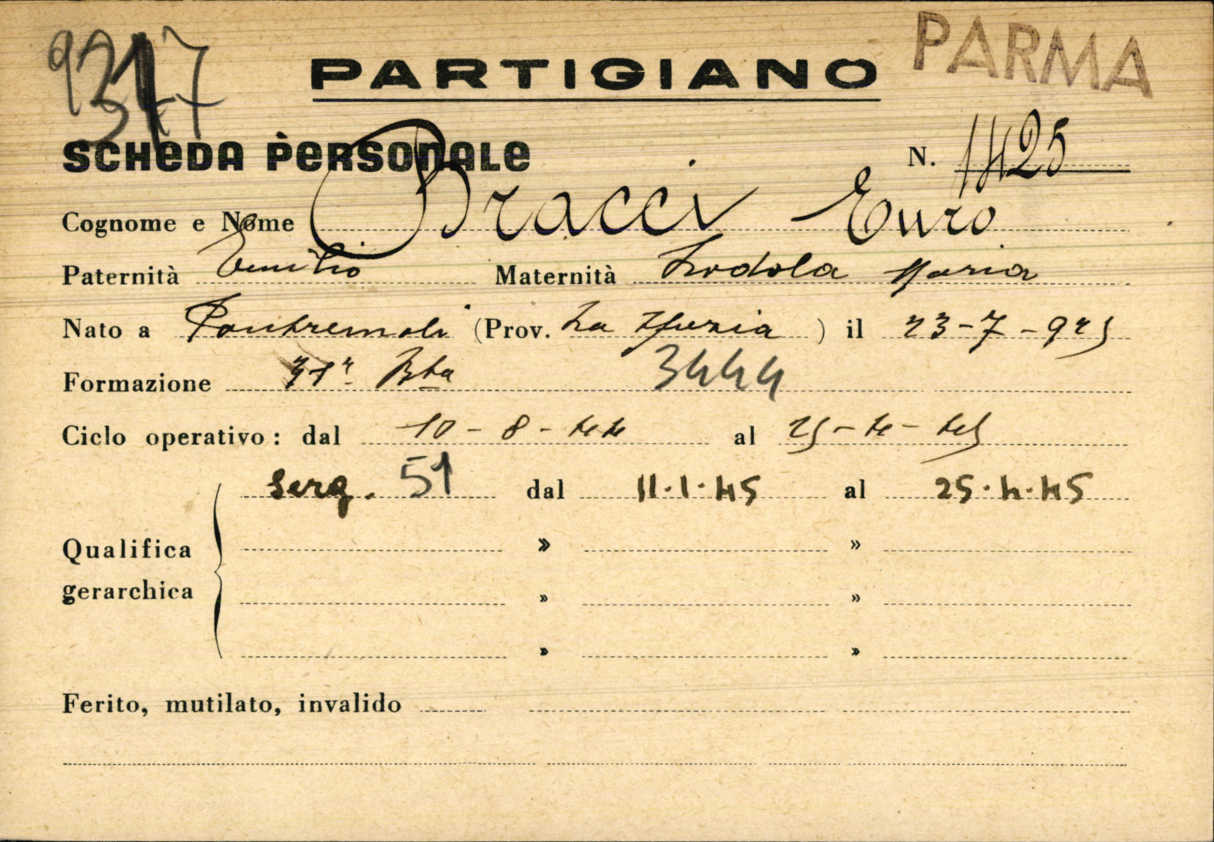 PARTIGIANO
PARMA
SCHEDA PERSONALE N. 1425
Cognome e Nome Bracci Euro
Paternità Emilio Maternità Lodola Maria
Nato a Pontremoli (Prov. La Spezia ) il 23-7-925
Formazione Bta 3444
Ciclo operativo: dal 10-8-44 al 25-4-45
serg. 51 dal 11.1.45 al 25.4.45
Qualifica gerarchica
» »
» »
» »
Ferito, mutilato, invalido